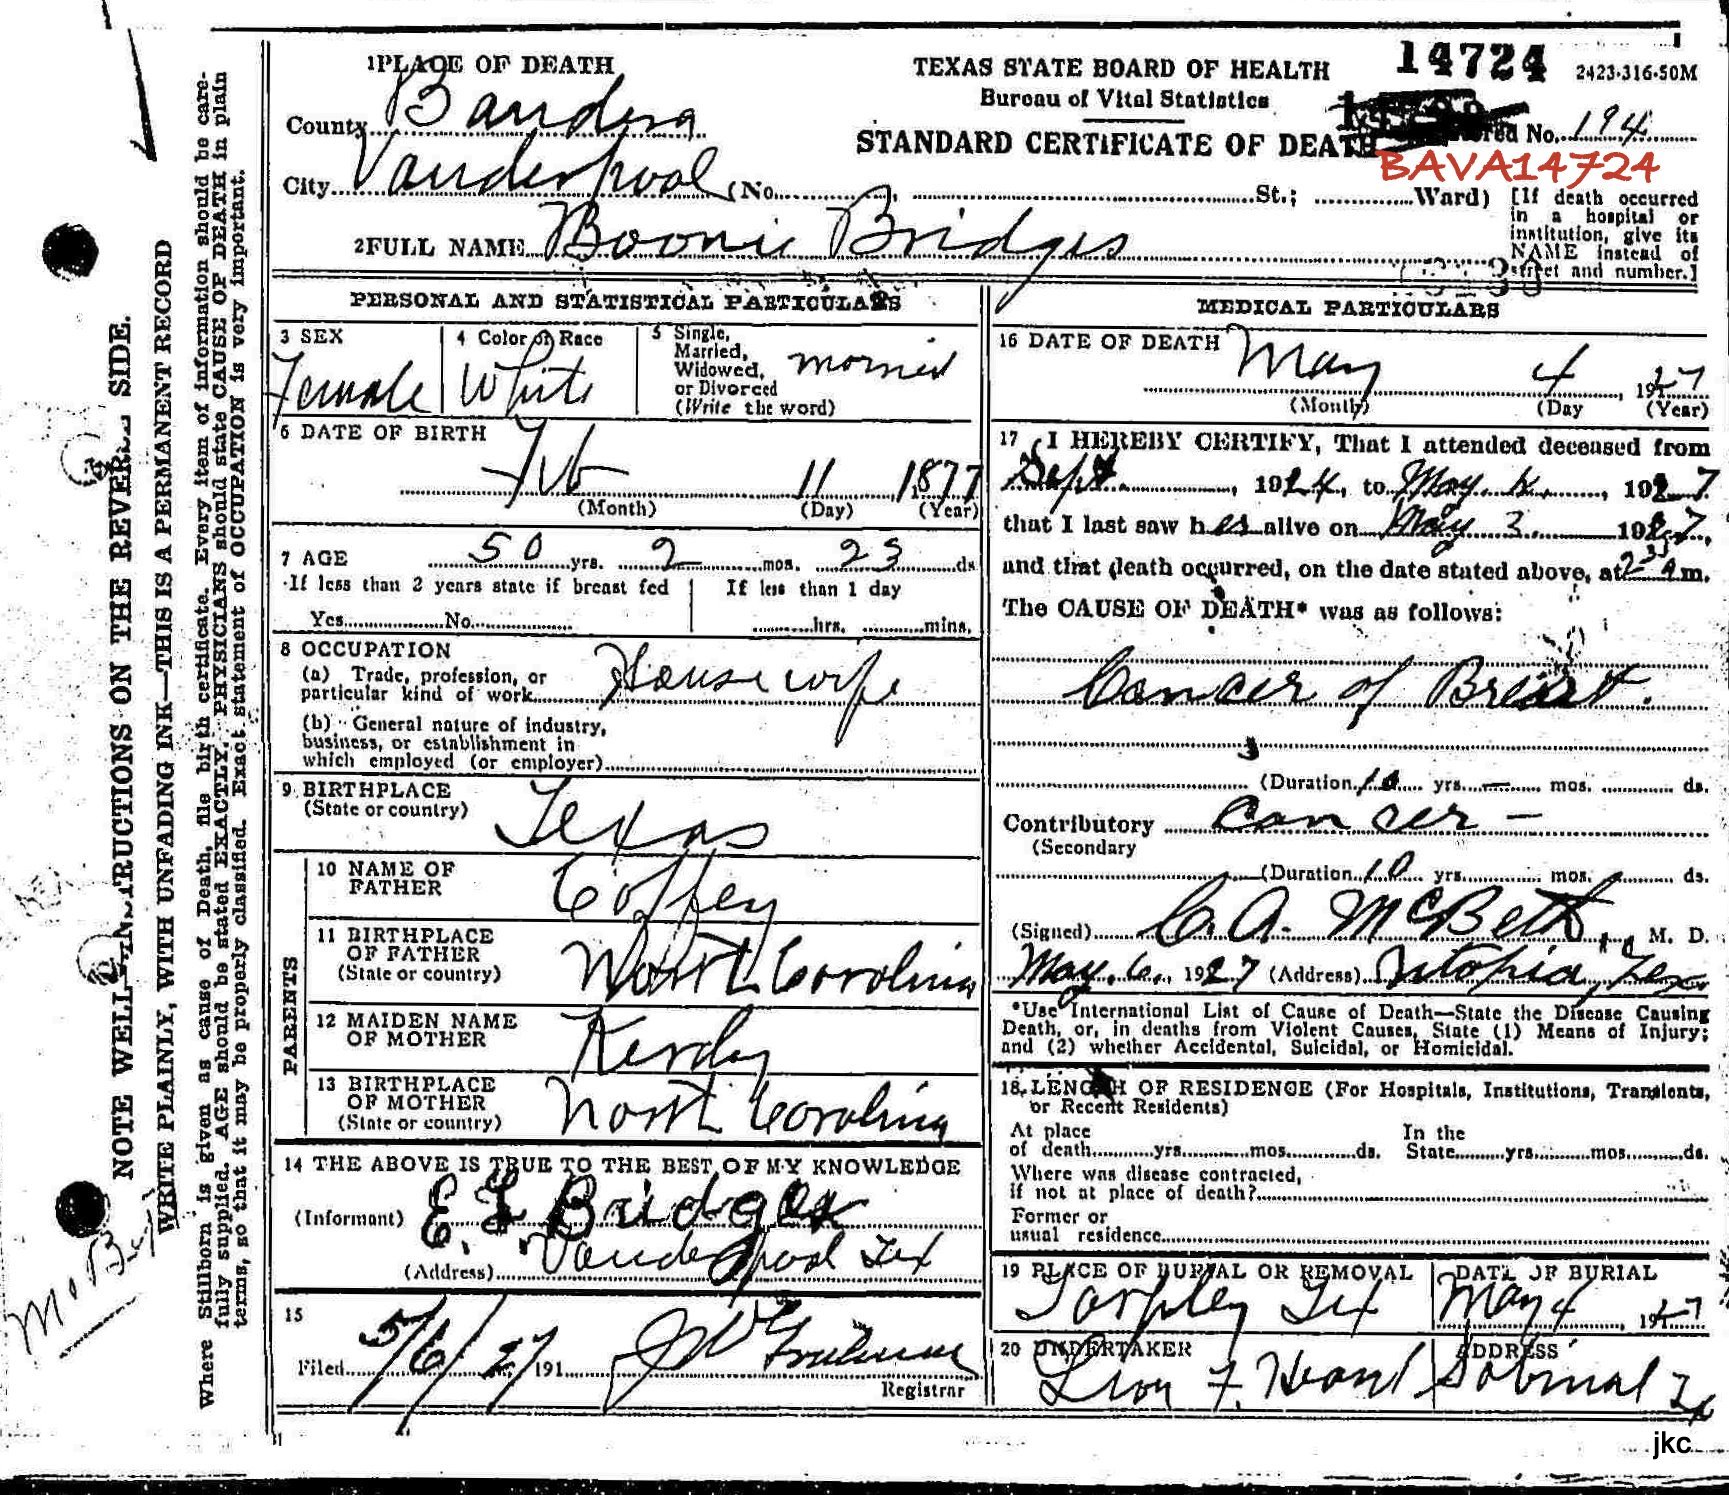 1 PLACE OF DEATH
TEXAS STATE BOARD OF HEALTH
14724
2423-316-50M
Bureau of Vital Statistics
County Bandera
STANDARD CERTIFICATE OF DEATH
No. 194
BAVA14724
City Vanderpool (No. St.; Ward)
[If death occurred
in a hospital or
institution, give its
NAME instead of
street and number.]
2 FULL NAME Boonie Bridges
PERSONAL AND STATISTICAL PARTICULARS
3 SEX
Female
4 Color or Race
White
5 Single,
Married,
Widowed,
or Divorced
(Write the word)
married
6 DATE OF BIRTH
Feb 11, 1877
(Month) (Day) (Year)
7 AGE 50 yrs. 2 mos. 23 ds
If less than 2 years state if breast fed
Yes No
If less than 1 day
hrs. mins.
8 OCCUPATION
(a) Trade, profession, or
particular kind of work House wife
(b) General nature of industry,
business, or establishment in
which employed (or employer)
9 BIRTHPLACE
(State or country)
Texas
PARENTS
10 NAME OF
FATHER
Coffey
11 BIRTHPLACE
OF FATHER
(State or country)
North Carolina
12 MAIDEN NAME
OF MOTHER
13 BIRTHPLACE
OF MOTHER
(State or country)
North Carolina
14 THE ABOVE IS TRUE TO THE BEST OF MY KNOWLEDGE
(Informant) E. F Bridges
(Address) Vanderpool Tex
15
Filed 5/6/27 191
Registrar
MEDICAL PARTICULARS
16 DATE OF DEATH
May 4, 1927
(Month) (Day (Year)
17 I HEREBY CERTIFY, That I attended deceased from
Sept. , 1924, to May 4, 1927
that I last saw her alive on May 3. 1927,
and that death occurred, on the date stated above, at 2 35 a m.
The CAUSE OF DEATH* was as follows:
Cancer of Breast.
(Duration 10 yrs. — mos. ds.
Contributory Cancer —
(Secondary
(Duration 10 yrs. mos. ds.
(Signed) C. A. McBeth, M. D.
May. 6., 1927 (Address) Utopia, Tex.
*Use International List of Cause of Death—State the Disease Causing
Death, or, in deaths from Violent Causes, State (1) Means of Injury;
and (2) whether Accidental, Suicidal, or Homicidal.
18 LENGTH OF RESIDENCE (For Hospitals, Institutions, Transients,
or Recent Residents)
At place
of death yrs. mos. ds.
In the
State yrs. mos. ds.
Where was disease contracted,
if not at place of death?
Former or
usual residence
19 PLACE OF BURIAL OR REMOVAL
Tarpley Tex
DATE OF BURIAL
May 4, 1927
20 UNDERTAKER
Leon F. Heard
ADDRESS
Sabinal Tx
jkc
NOTE WELL INSTRUCTIONS ON THE REVERSE SIDE.
WRITE PLAINLY, WITH UNFADING INK—THIS IS A PERMANENT RECORD
Where Stillborn is given as cause of Death, file birth certificate. Every item of information should be care-
fully supplied. AGE should be stated EXACTLY. PHYSICIANS should state CAUSE OF DEATH in plain
terms, so that it may be properly classified. Exact statement of OCCUPATION is very important.